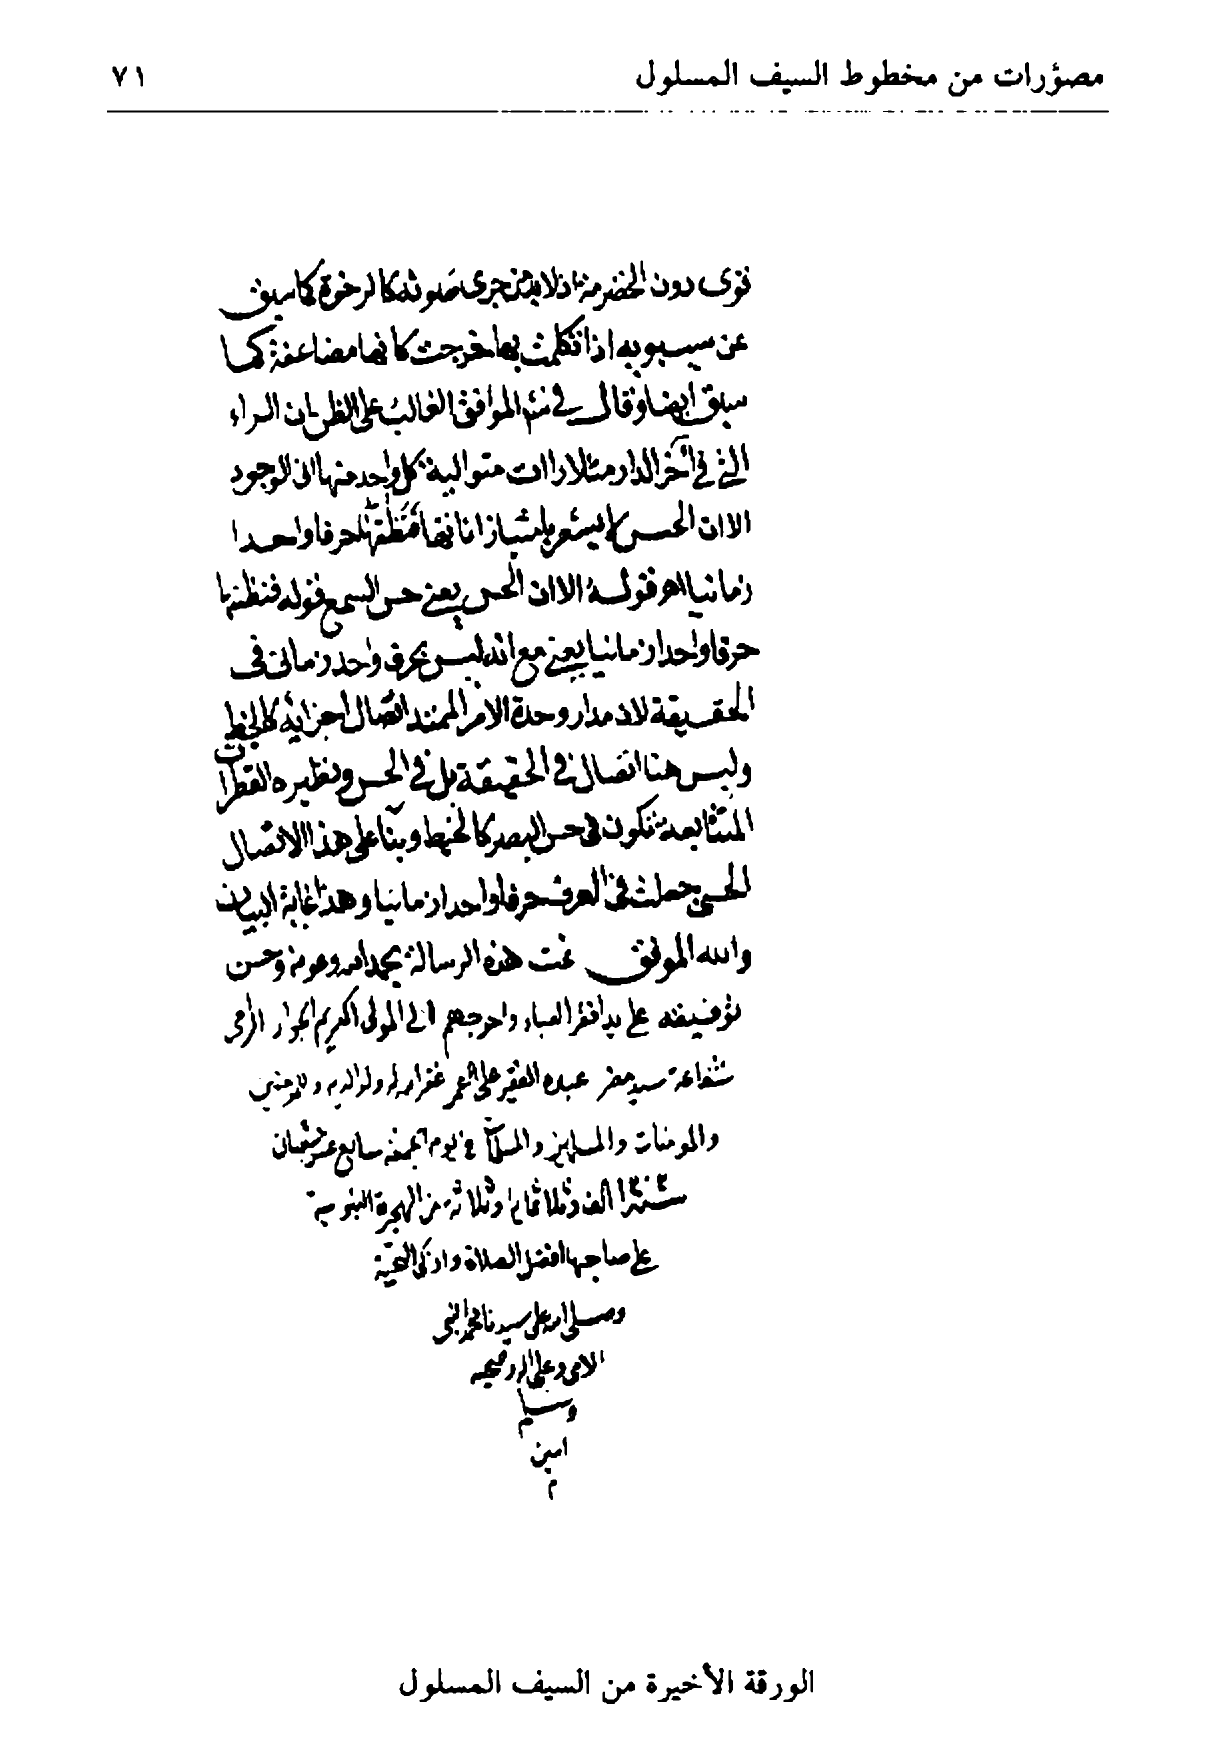 مصوّرات من مخطوط السيف المسلول
٧١
قوى دون الخضرمة اذ لابد من جرى صوته كالرخوة كما سبق
عن سيبويه اذا تكلمت بها خرجت كانها مضاعفة كما
سبق ايضا وقال في شرح المواقف الغالب على الظن ان الراء
التي في آخر الدار مثلا راات متوالية كل واحد منها اني الوجود
الا ان الحس لا يشعر بامتياز اناتها فنظنها حرفا واحدا
زمانيا اهـ قوله الا ان الحس يعني حس السمع قوله فنظنها
حرفا واحدا زمانيا يعني مع انه ليس بحرف واحد زماني في
الحقيقة لان مدار وحدة الامر الممتد اتصال اجزائه كالخط
وليس هنا اتصال في الحقيقة بل في الحس ونظيره القطرات
المتتابعة تكون في حس البصر كالخيط وبنا على هذا الاتصال
الحسي جعلت في العرف حرفا واحدا زمانيا وهذا غاية البيان
والله الموفق تمت هذه الرسالة بحمد الله وعونه وحسن
توفيقه على يد افقر العباد واحوجهم الى المولى الكريم الجواد الراجى
شفاعة سيد مضر عبده الفقير على عمر غفر الله له ولوالديه وللمومنين
والمومنات والمسلمين والمسلمات في يوم الجمعة سابع عشر شعبان
سنة الف وثلاثماية وثلاثة من الهجرة النبوية
على صاحبها افضل الصلاة وازكى التحية
وصلى الله على سيدنا محمد النبى
الامى وعلى اله وصحبه
وسلم
امين
م
الورقة الأخيرة من السيف المسلول